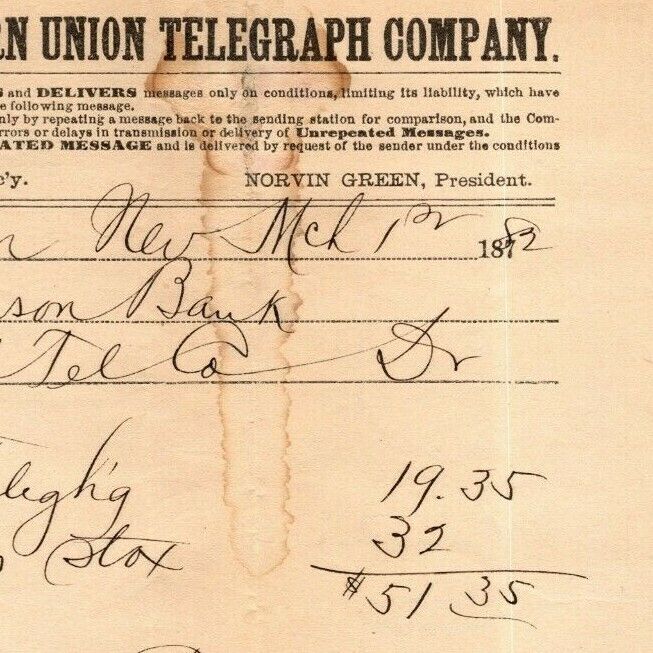 RN UNION TELEGRAPH COMPANY.
S and DELIVERS messages only on conditions, limiting its liability, which have
e following message.
nly by repeating a message back to the sending station for comparison, and the Com-
rrors or delays in transmission or delivery of Unrepeated Messages.
ATED MESSAGE and is delivered by request of the sender under the conditions
c'y. NORVIN GREEN, President.
n Nev Mch 1st 1882
son Bank
Tel Co Dr
legh'g 19.35
Stox 32
$51 35